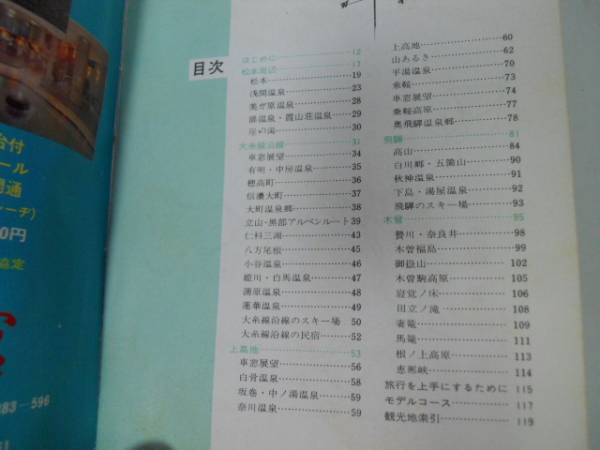 台付
ール
通
ーチ)
0円
協定
283-596
目次
はじめに 12
松本周辺 17
松本 19
浅間温泉 23
美ガ原温泉 28
扉温泉・霞山荘温泉 29
崖ノ湯 30
大糸線沿線 31
車窓展望 34
有明・中房温泉 35
穂高町 36
信濃大町 37
大町温泉郷 38
立山・黒部アルペンルート 39
仁科三湖 43
八方尾根 45
小谷温泉 46
姫川・白馬温泉 47
蒲原温泉 48
蓮華温泉 49
大糸線沿線のスキー場 50
大糸線沿線の民宿 52
上高地 53
車窓展望 56
白骨温泉 58
坂巻・中ノ湯温泉 59
奈川温泉 59
上高地 60
山あるき 62
平湯温泉 70
乗鞍 73
車窓展望 74
乗鞍高原 77
奥飛騨温泉郷 78
飛騨 81
高山 84
白川郷・五箇山 90
秋神温泉 91
下島・湯屋温泉 92
飛騨のスキー場 93
木曽 95
贄川・奈良井 98
木曽福島 99
御嶽山 102
木曽駒高原 105
寝覚ノ床 106
田立ノ滝 108
妻籠 109
馬籠 111
根ノ上高原 113
恵那峡 114
旅行を上手にするために 115
モデルコース 117
観光地索引 119